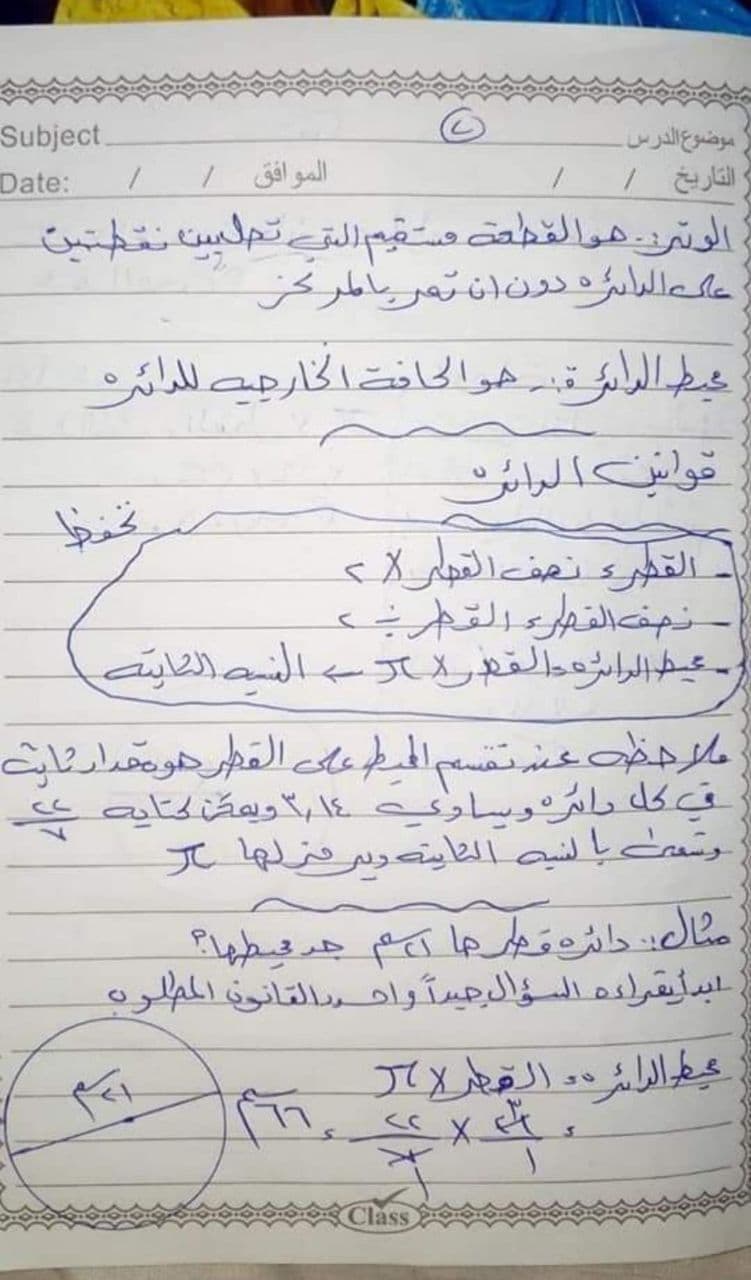 ٢
موضوع الدرس Subject
التاريخ / / الموافق / / Date:
الوتر:- هو القطعة مستقيم التي تصل بين نقطتين
على الدائره دون ان تمر بالمركز
محيط الدائرة:- هو الحافة الخارجيه للدائره
قوانين الدائره
تحفظ
- القطر = نصف القطر × ٢
- نصف القطر = القطر ÷ ٢
- محيط الدائره = القطر × π ← النسبه الثابته
ملاحظه عند تقسم المحيط على القطر هو مقدار ثابت
في كل دائره ويساوي ٣,١٤ ويمكن كتابه ٢٢/٧
وتسمى بالنسبه الثابته ويرمز لها π
مثال:. دائره قطرها ٢١ سم جد محيطها؟
ابدأ بقراءه السؤال جيداً واحدد القانون المطلوب
محيط الدائره = القطر × π
= ٢١/١ ٣ × ٢٢/٧ ١ = ٦٦ سم
٢١ سم
Class